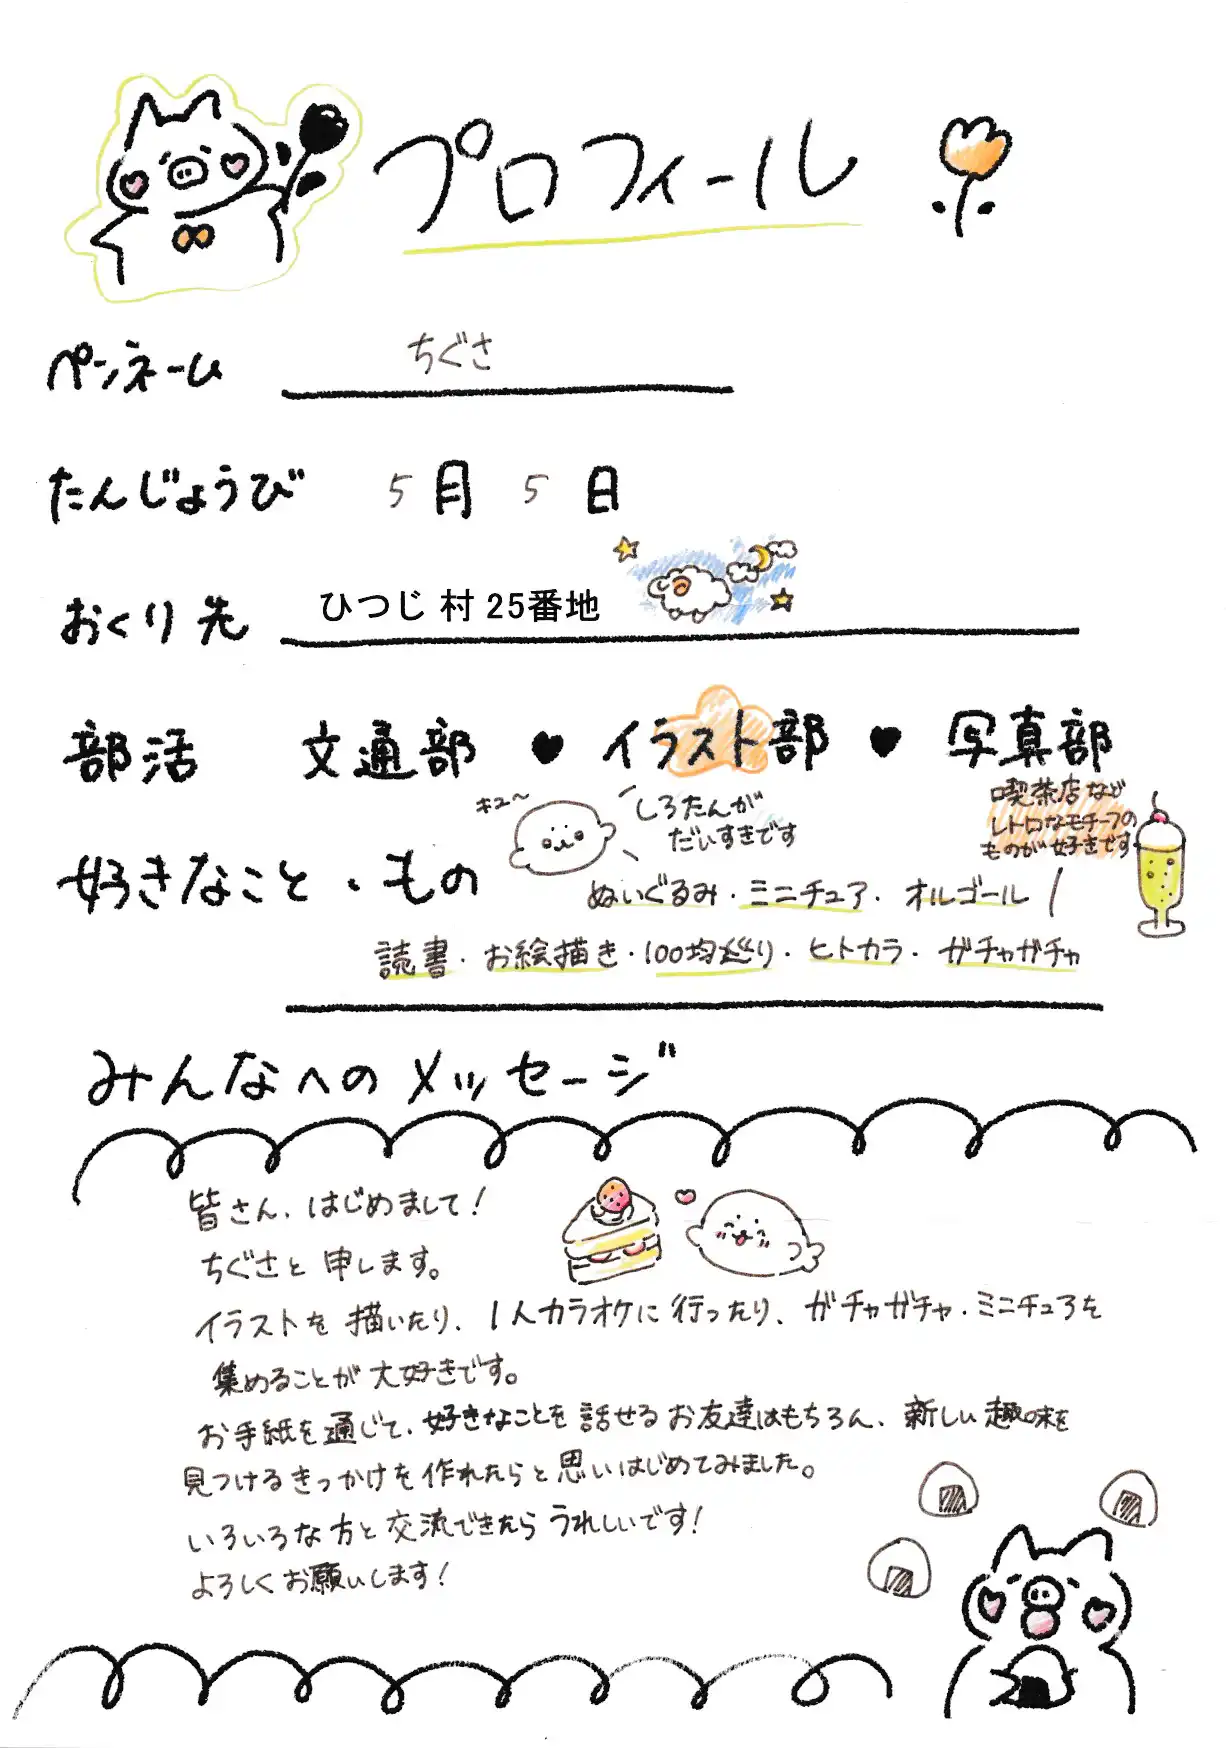 プロフィール
ペンネーム ちぐさ
たんじょうび 5月5日
おくり先 ひつじ村25番地
部活 文通部 ♥ イラスト部 ♥ 写真部
キュ〜
しろたんが
だいすきです
喫茶店など
レトロなモチーフの
ものが好きです
好きなこと・もの
ぬいぐるみ・ミニチュア・オルゴール
読書・お絵描き・100均巡り・ヒトカラ・ガチャガチャ
みんなへのメッセージ
皆さん、はじめまして!
ちぐさと申します。
イラストを描いたり、1人カラオケに行ったり、ガチャガチャ・ミニチュアを
集めることが大好きです。
お手紙を通じて、好きなことを話せるお友達はもちろん、新しい趣味を
見つけるきっかけを作れたらと思いはじめてみました。
いろいろな方と交流できたらうれしいです!
よろしくお願いします!